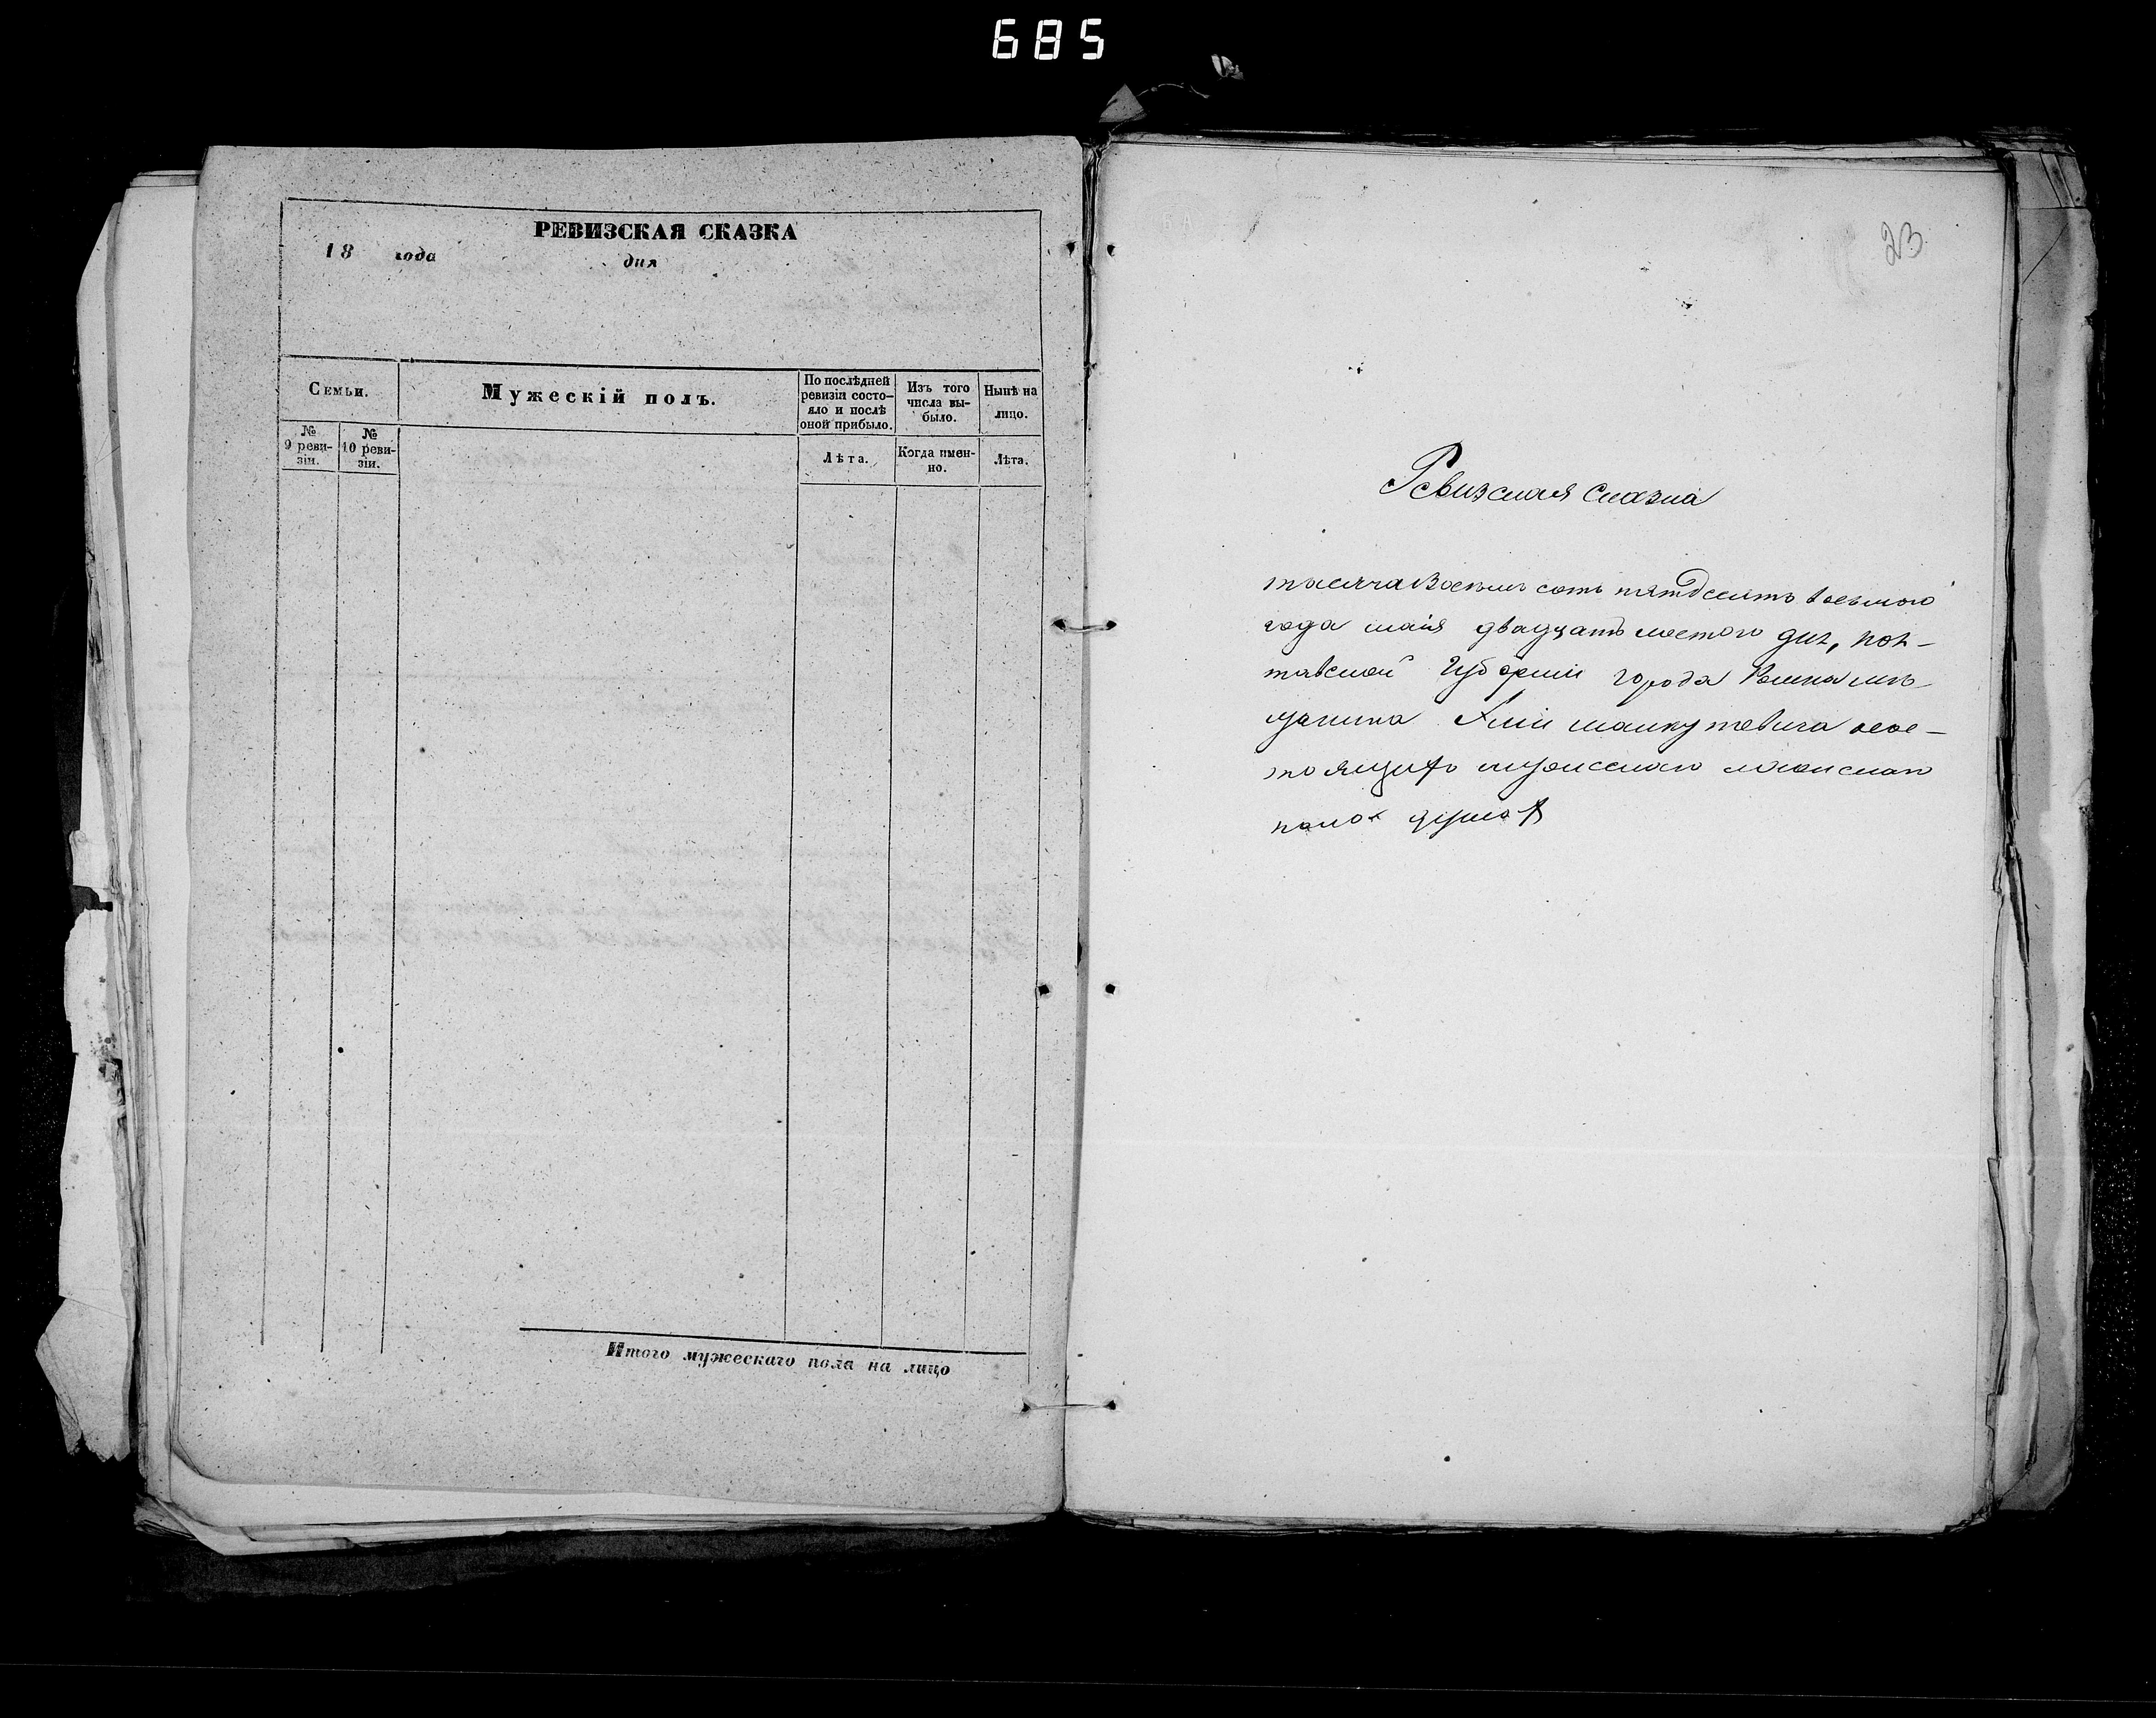 685
РЕВИЗСКАЯ СКАЗКА
18 года дня
Семьи.
Мужескій полъ.
По послѣдней ревизіи состо-
яло и послѣ
оной прибыло.
Изъ того
числа вы-
было.
Нынѣ на
лицо.
№
9 реви-
зіи.
№
10 реви-
зіи.
Лѣта.
Когда имен-
но.
Лѣта.
Итого мужескаго пола на лицо
23
Ревизская сказка
тысяча восемь сотъ пятдесятъ восьмого
года маія двадцать шестого дня, пол-
тавской Губерніи города мѣ
щанина
мужескаго
пола душах